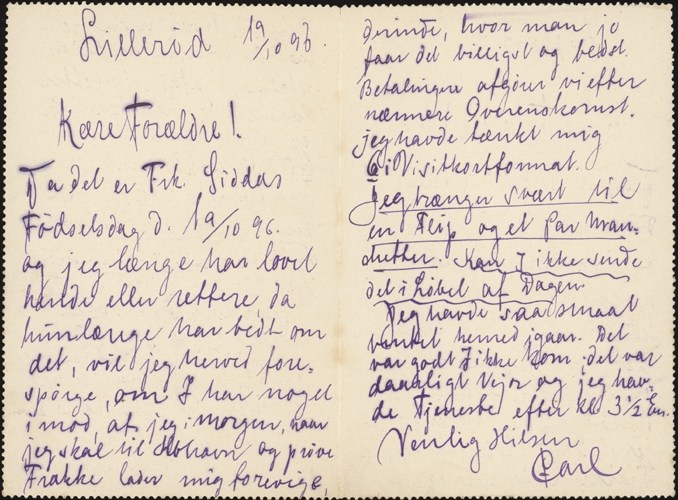 Lillerød 19/10 96.
Kære Forældre!
Da det er Frk. Giddas
Födselsdag d. 19/10 96.
og jeg længe har lovet
hende eller rettere, da
hun længe har bedt om
det, vil jeg herved fore-
spörge, om I har noget
imod, at jeg i morgen, naar
jeg skal til Kbhavn og pröve
Frakke lader mig forevige,
derinde, hvor man jo
faar det billigst og bedst.
Betalingen afgör vi efter
nærmere Overenskomst.
jeg havde tænkt mig
6 i Visitkortformat.
Jeg trænger svært til
en Flip og et Par Man-
chetter. Kan I ikke sende
det i Löbet af Dagen.
Jeg havde saa smaat
ventet herned igaar. Det
var godt I ikke kom. det var
daarligt Vejr og jeg hav-
de Tjeneste efter Kl 3½ Em.
Venlig Hilsen
Carl